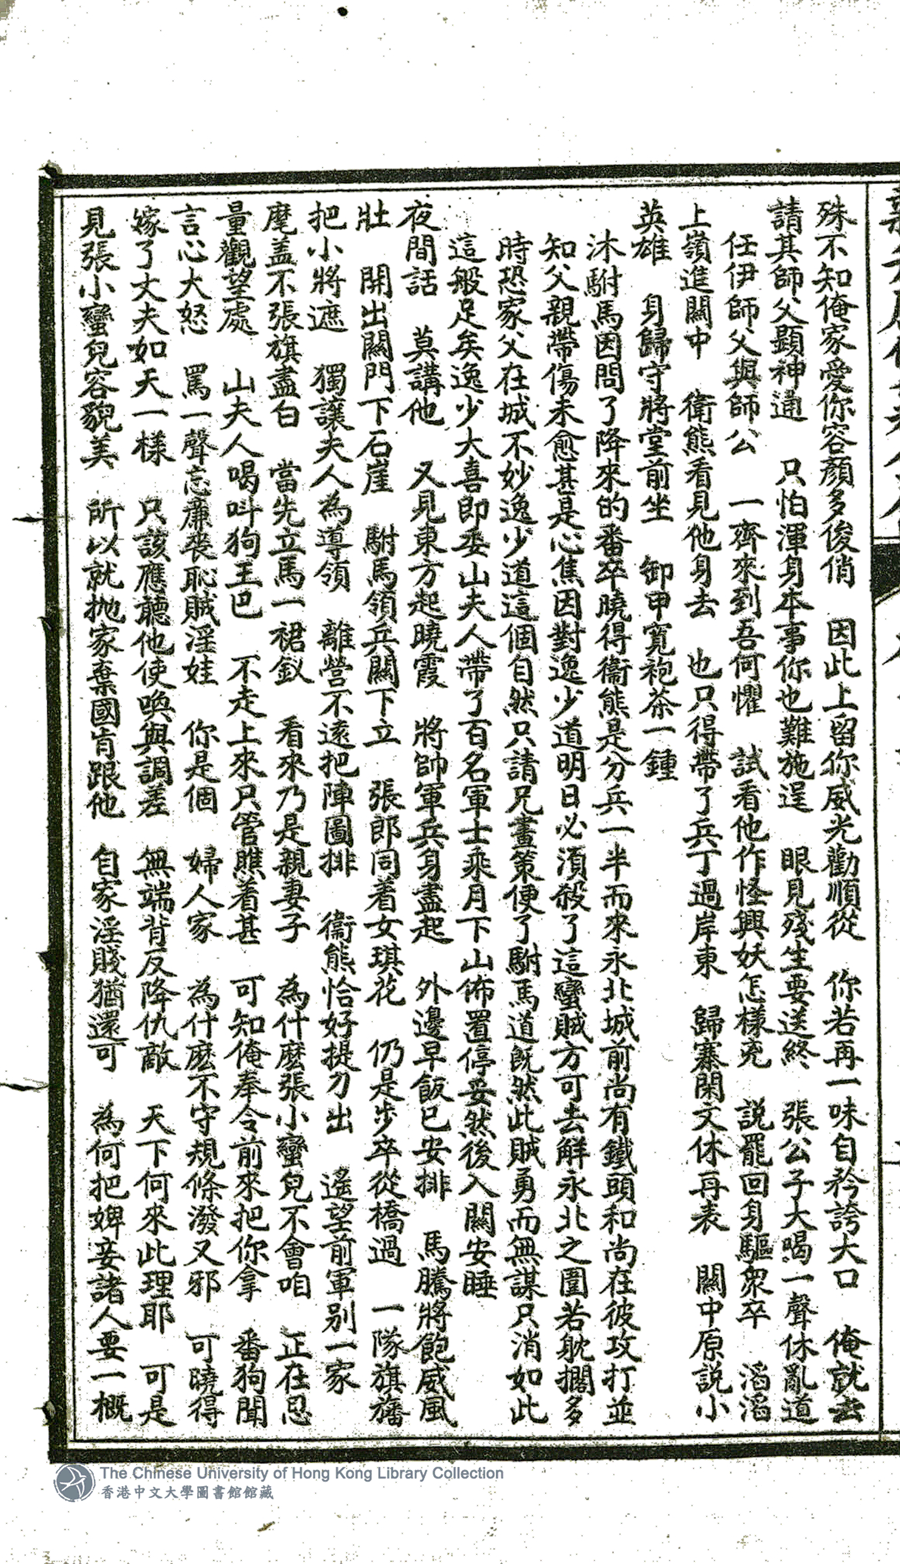 殊不知俺家愛你容顏多俊俏　因此上留你威光勸順從　你若再一味自矜誇大口　俺就去
請其師父顯神通　只怕渾身本事你也難施逞　眼見殘生要送終　張公子大喝一聲休亂道
任伊師父與師公　一齊來到吾何懼　試看他作怪興妖怎樣兇　說罷回身驅衆卒　滔滔
上嶺進關中　衛熊看見他身去　也只得帶了兵丁過岸東　歸寨閑文休再表　關中原說小
英雄　身歸守將堂前坐　卸甲寬袍茶一鍾
沐駙馬因問了降來的番卒曉得衛熊是分兵一半而來永北城前尚有鐵頭和尚在彼攻打並
知父親帶傷未愈甚是心焦因對逸少道明日必須殺了這蠻賊方可去解永北之圍若躭擱多
時恐家父在城不妙逸少道這個自然只請兄畫策便了駙馬道既然此賊勇而無謀只消如此
這般足矣逸少大喜即委山夫人帶了百名軍士乘月下山佈置停妥然後入關安睡
夜間話　莫講他　又見東方起曉霞　將帥軍兵身盡起　外邊早飯已安排　馬騰將飽威風
壯　開出關門下石崖　駙馬領兵關下立　張郎同着女琪花　仍是步卒從橋過　一隊旗旛
把小將遮　獨讓夫人為導領　離營不遠把陣圖排　衛熊恰好提刀出　遙望前軍別一家
麾蓋不張旗盡白　當先立馬一裙釵　看來乃是親妻子　為什麽張小蠻兒不會咱　正在忍
量觀望處　山夫人喝呌狗王巴　不走上來只管瞧着甚　可知俺奉令前來把你拿　番狗聞
言心大怒　罵一聲忘廉喪恥賊淫娃　你是個　婦人家　為什麽不守規條潑又邪　可曉得
嫁了丈夫如天一樣　只該應聽他使喚與調差　無端背反降仇敵　天下何來此理耶　可是
見張小蠻兒容貌美　所以就抛家棄國肯跟他　自家淫賤猶還可　為何把婢妾諸人要一概
The Chinese University of Hong Kong Library Collection
香港中文大學圖書館館藏